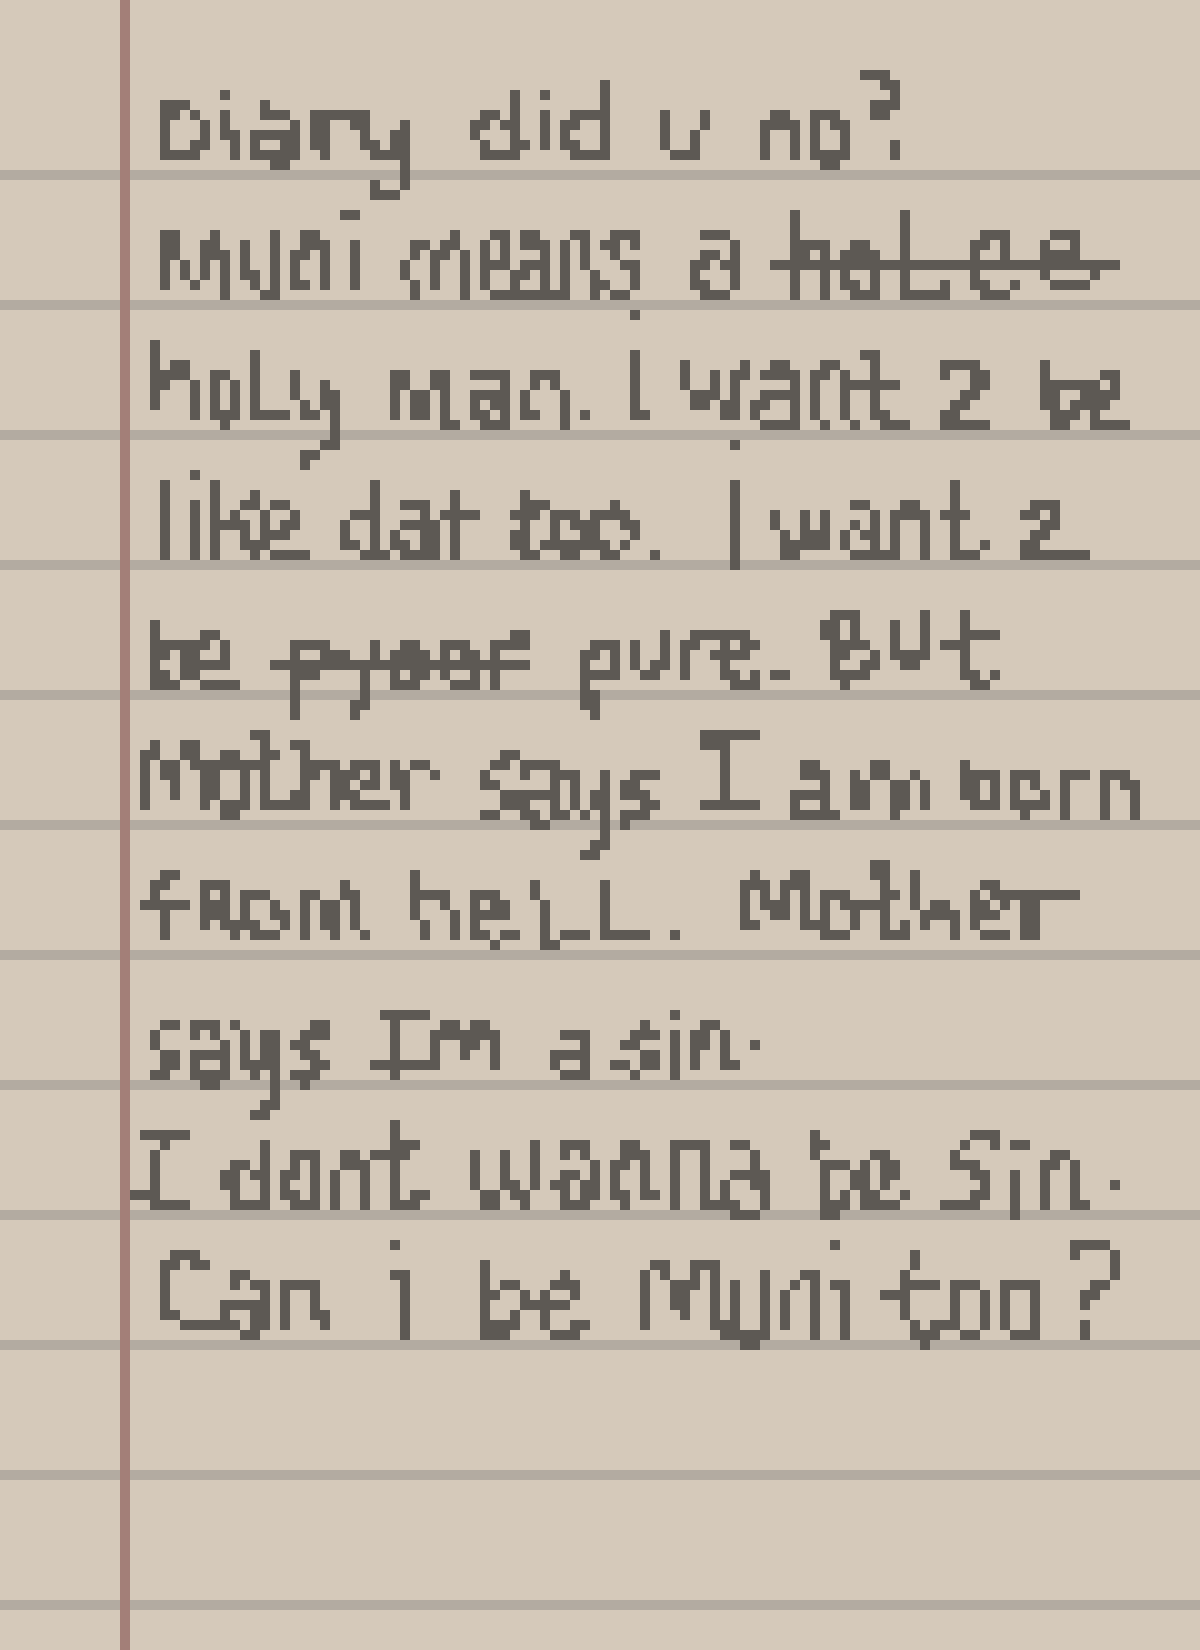 Diary did u no?
Muni means a holee
holy man. i want 2 be
like dat too. I want 2
be pyoor pure. But
Mother says I am born
from hell. Mother
says Im a sin.
I dont wanna be sin.
Can i be Muni too?